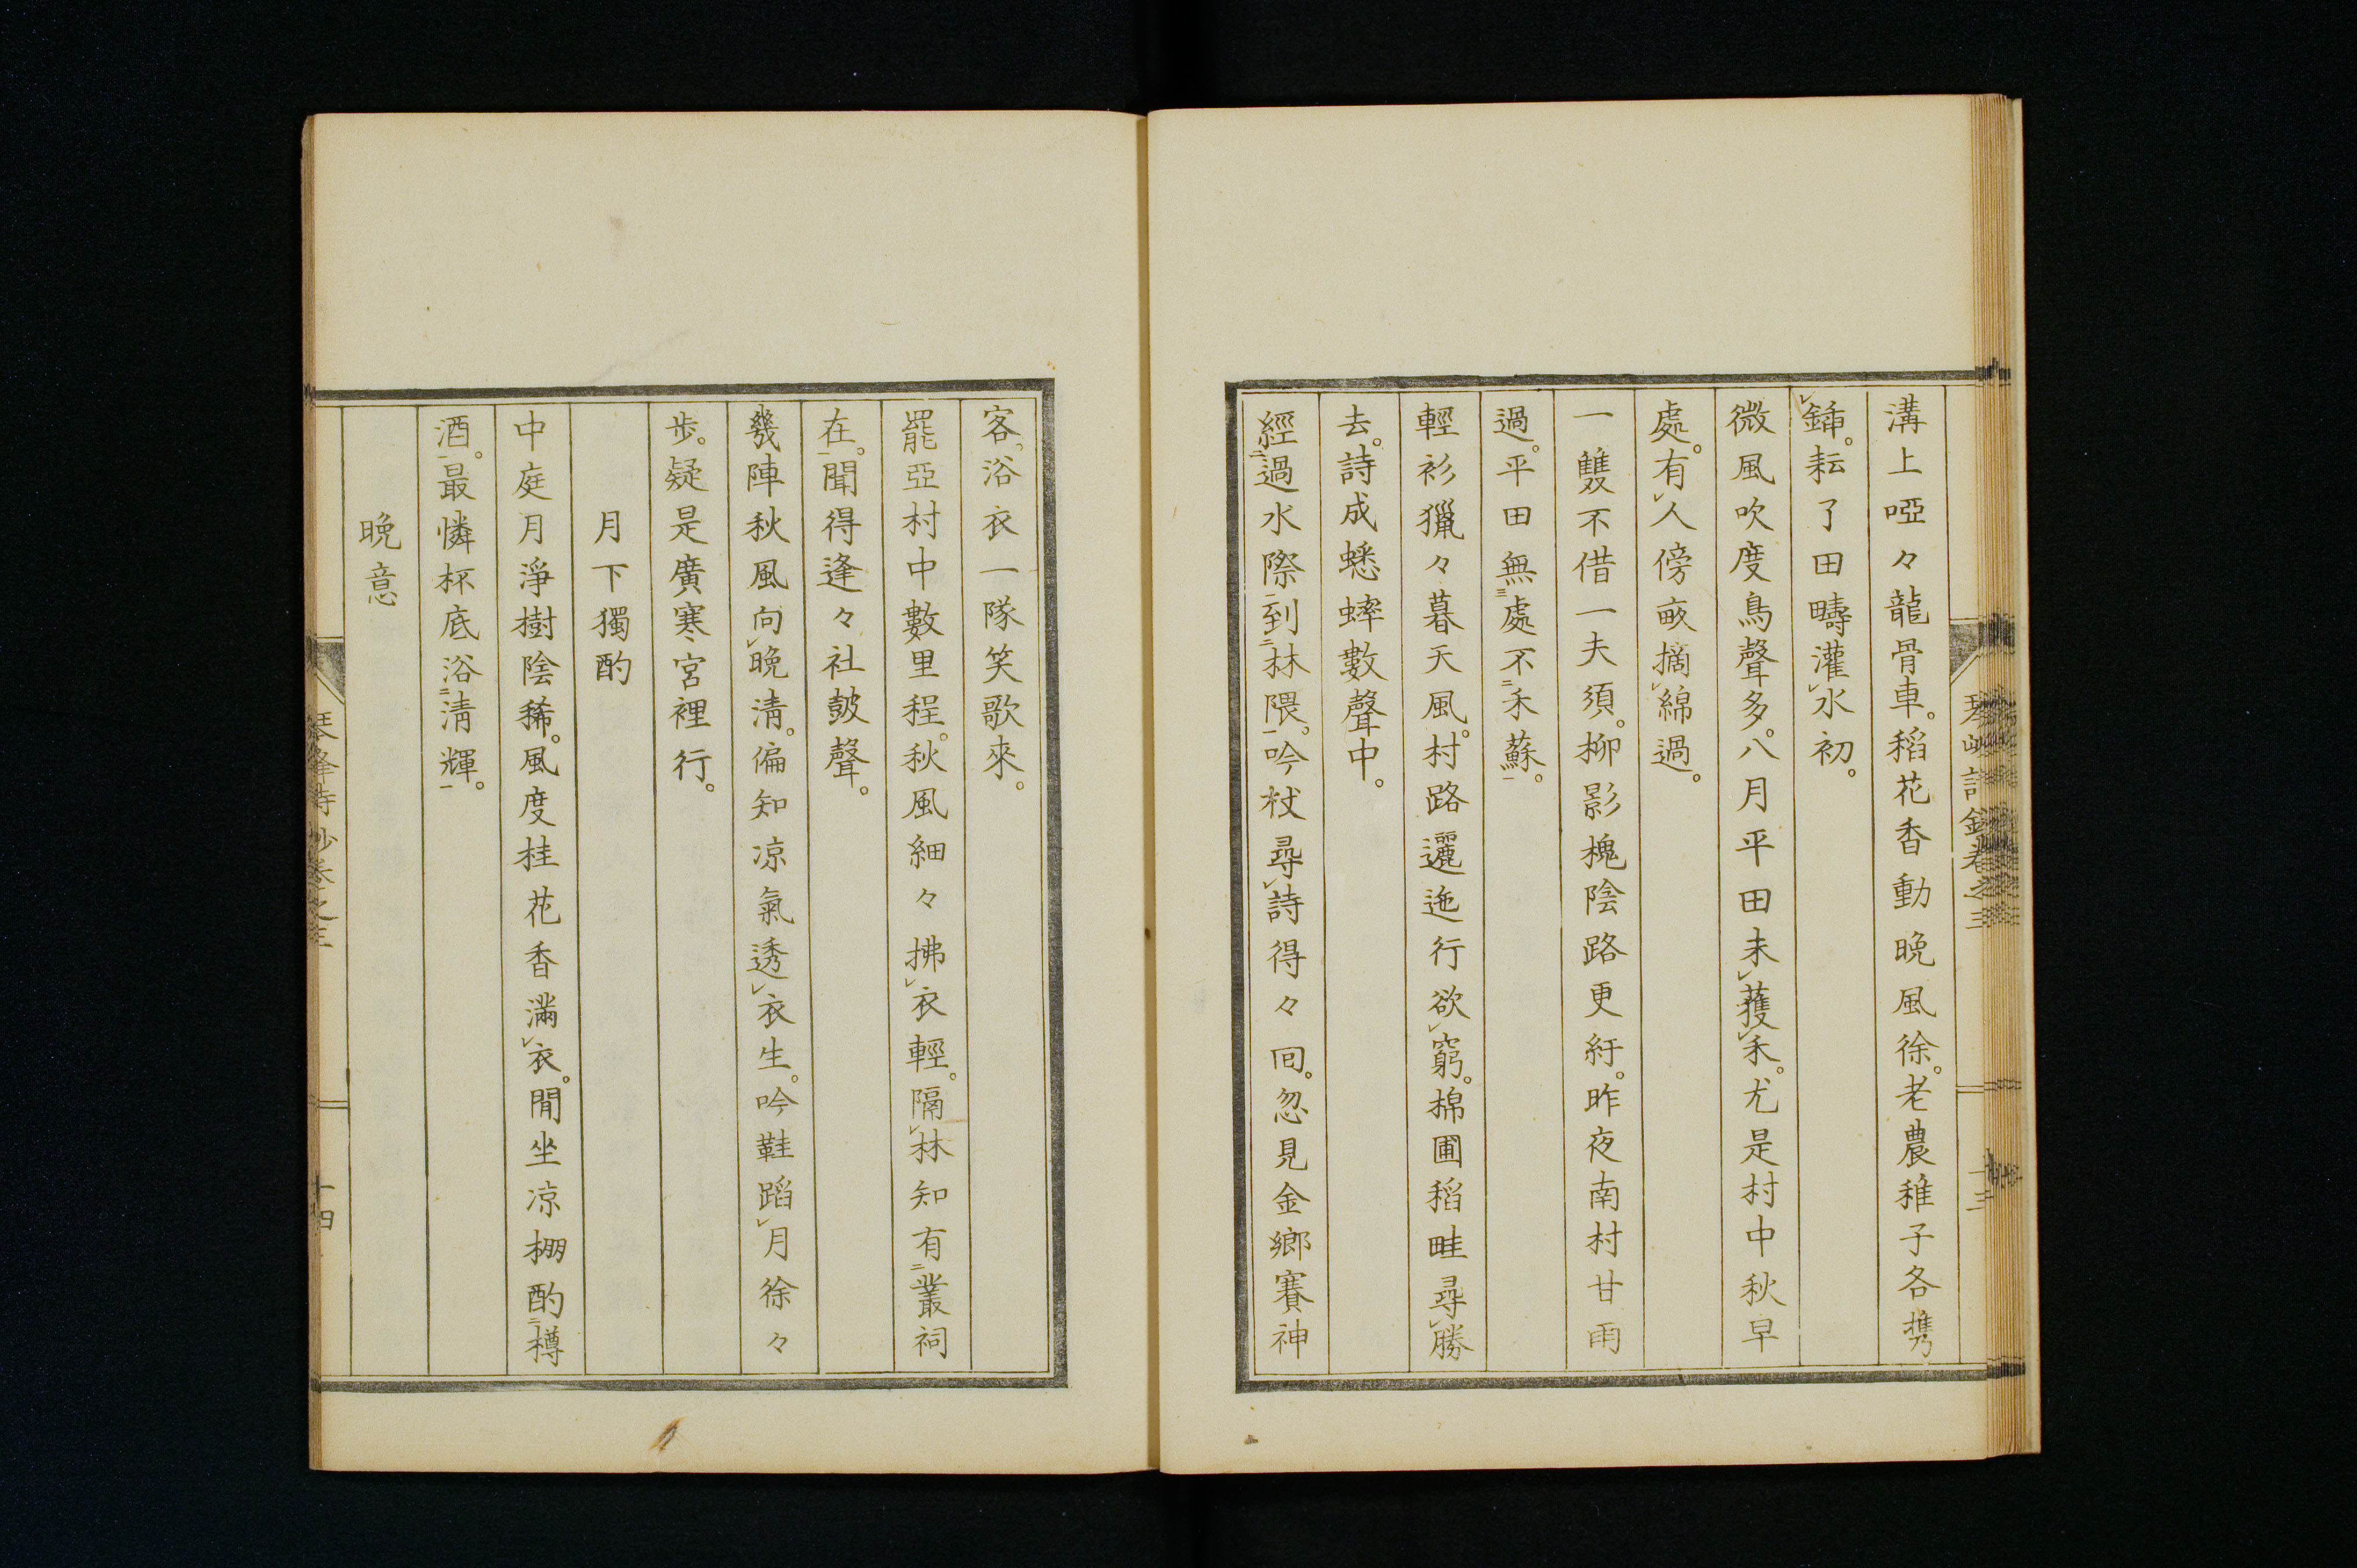 溝上啞々龍骨車。稻花香動晚風徐。老農稚子各携
鍤。耘了田疇灌水初。
微風吹度鳥聲多。八月平田未穫禾。尤是村中秋早
處。有人傍畝摘綿過。
一雙不借一夫須。柳影槐陰路更紆。昨夜南村甘雨
過。平田無三處不二禾蘇一。
輕衫獵々暮天風。村路邐迤行欲窮。棉圃稻畦尋勝
去。詩成蟋蟀數聲中。
經二過水際一到二林隈一。吟杖尋詩得々回。忽見金鄉賽神
客。浴衣一隊笑歌來。
罷亞村中數里程。秋風細々拂衣輕。隔林知有二叢祠
在一。聞得逢々社鼓聲。
幾陣秋風向晚清。偏知凉氣透衣生。吟鞋蹈月徐々
步。疑是廣寒宮裡行。
月下獨酌
中庭月淨樹陰稀。風度桂花香滿衣。閒坐凉棚酌二樽
酒一。最憐杯底浴二清輝一。
晚意
琴峰詩鈔卷之三
十四